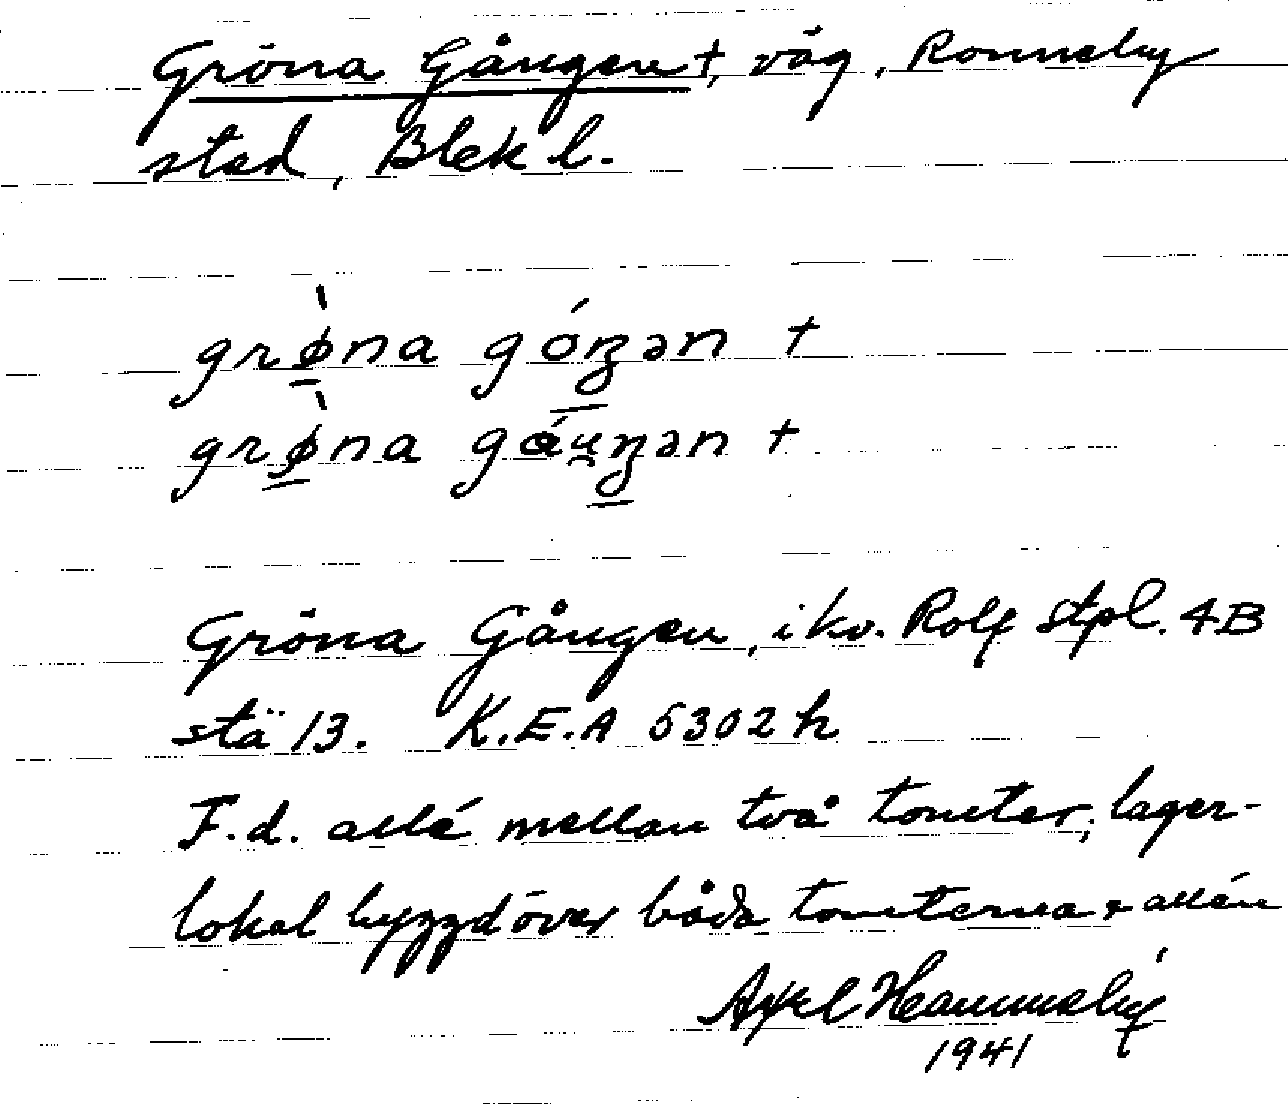 Gröna Gången †, väg, Ronneby
stad, Blek l.
grø̀na góŋən †
grø̀na gáu̯ŋən †
Gröna Gången, i kv. Rolf stpl. 4B
stä 13. K.E.A 5302 h
F.d. allé mellan två tomter; lager-
lokal byggd över båda tomterna + allén
Axel Hammneby
1941